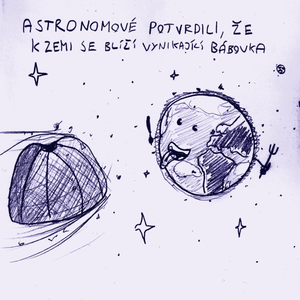 ASTRONOMOVÉ POTVRDILI, ŽE
K ZEMI SE BLÍŽÍ VYNIKAJÍCÍ BÁBOVKA